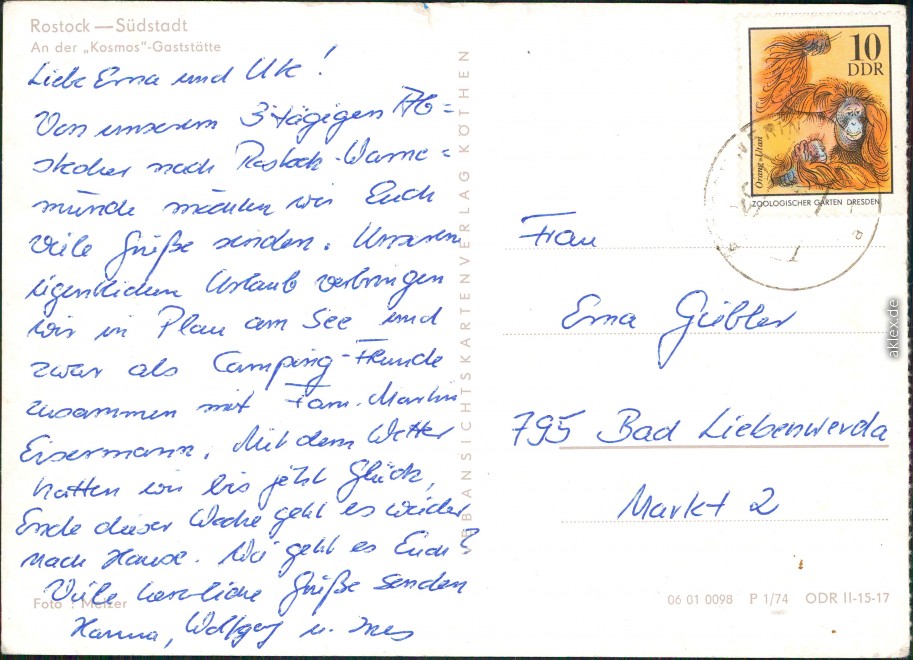 Rostock — Südstadt
An der „Kosmos“-Gaststätte
Liebe Erna und Ute!
Von unserem 3-tägigen Ab=
stecher nach Rostock-Warne=
münde möchten wir Euch
viele Grüße senden. Unseren
eigentlichen Urlaub verbringen
wir in Plau am See und
zwar als Camping-Freunde
zusammen mit Fam. Martin
Eisermann. Mit dem Wetter
hatten wir bis jetzt Glück,
Ende dieser Woche geht es wieder
nach Hause. Wie geht es Euch?
Viele herzliche Grüße senden
Hanna, Wolfgang u. Ines
Foto: Melzer
VEB ANSICHTSKARTENVERLAG KÖTHEN
10
DDR
Orang-Utan
ZOOLOGISCHER GARTEN DRESDEN
Frau
Erna Giebler
795 Bad Liebenwerda
Markt 2
06 01 0098 P 1/74 ODR II-15-17
aklex.de